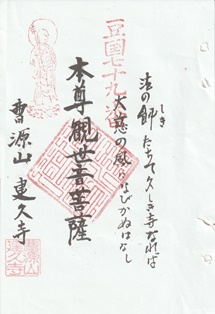 法の師たちて久しき寺なれば
しき
大慈の風になびかぬはなし
豆国七十九番
本尊観世音菩薩
曹源山 建久寺